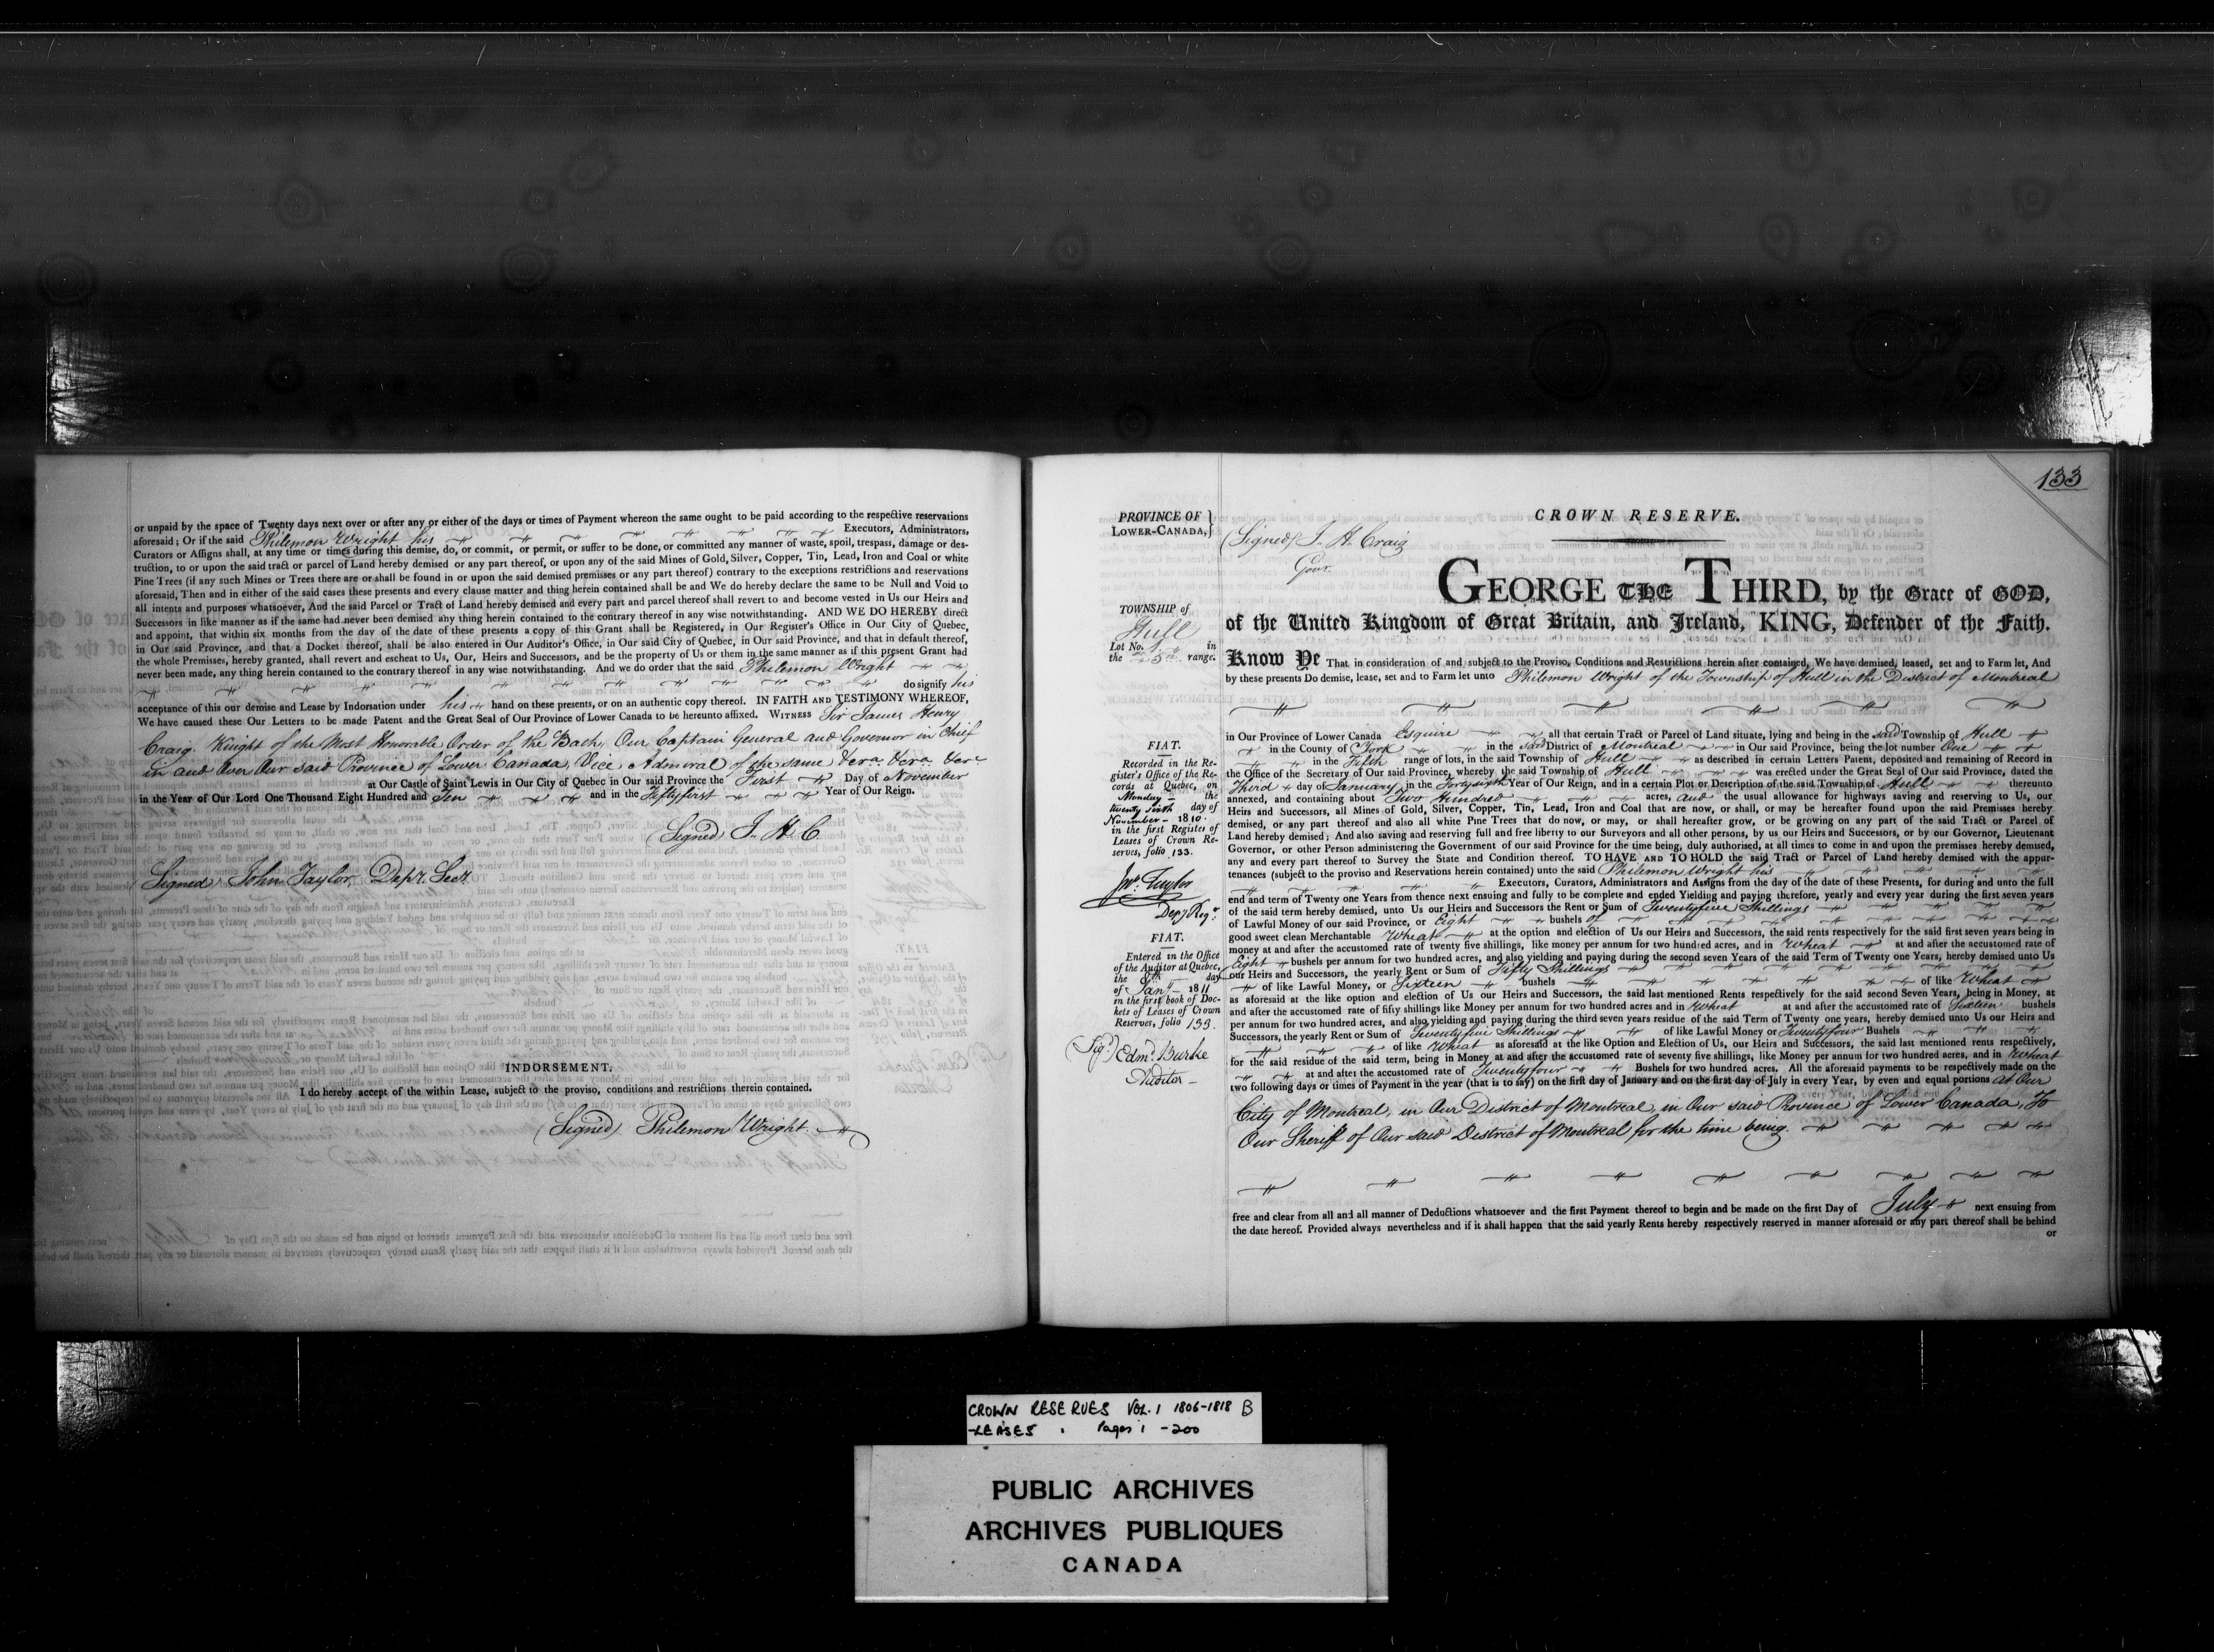 or unpaid by the space of Twenty days next over or after any or either of the days or times of Payment whereon the same ought to be paid according to the respective reservations
aforesaid; Or if the said Philemon Wright his Executors, Administrators,
Curators or Assigns shall, at any time or times during this demise, do, or commit, or permit, or suffer to be done, or committed any manner of waste, spoil, trespass, damage or des-
truction, to or upon the said tract or parcel of Land hereby demised or any part thereof, or upon any of the said Mines of Gold, Silver, Copper, Tin, Lead, Iron and Coal or white
Pine Trees (if any such Mines or Trees there are or shall be found in or upon the said demised premises or any part thereof) contrary to the exceptions restrictions and reservations
aforesaid, Then and in either of the said cases these presents and every clause matter and thing herein contained shall be and We do hereby declare the same to be Null and Void to
all intents and purposes whatsoever, And the said Parcel or Tract of Land hereby demised and every part and parcel thereof shall revert to and become vested in Us our Heirs and
Successors in like manner as if the same had never been demised any thing herein contained to the contrary thereof in any wise notwithstanding. AND WE DO HEREBY direct
and appoint, that within six months from the day of the date of these presents a copy of this Grant shall be Registered, in Our Register's Office in Our City of Quebec,
in Our said Province, and that a Docket thereof, shall be also entered in Our Auditor's Office, in Our said City of Quebec, in Our said Province, and that in default thereof,
the whole Premises, hereby granted, shall revert and escheat to Us, Our, Heirs and Successors, and be the property of Us or them in the same manner as if this present Grant had
never been made, any thing herein contained to the contrary thereof in any wise notwithstanding. And we do order that the said Philemon Wright
do signify his
acceptance of this our demise and Lease by Indorsation under his hand on these presents, or on an authentic copy thereof. IN FAITH AND TESTIMONY WHEREOF,
We have caused these Our Letters to be made Patent and the Great Seal of Our Province of Lower Canada to be hereunto affixed. WITNESS Sir James Henry
Craig. Knight of the Most Honorable Order of the Bath, Our Captain General and Governor in Chief
in and Over Our said Province of Lower Canada, Vice Admiral of the same &c.a &c.a &c.a
at Our Castle of Saint Lewis in Our City of Quebec in Our said Province the First Day of November
in the Year of Our Lord One Thousand Eight Hundred and Ten and in the Fiftyfirst Year of Our Reign.
(Signed) J. H. C.
(Signed) John Taylor, Depy. Secy.
INDORSEMENT.
I do hereby accept of the within Lease, subject to the proviso, conditions and restrictions therein contained.
(Signed) Philemon Wright.
133
PROVINCE OF
LOWER-CANADA,
(Signed) J. H. Craig
Govr.
CROWN RESERVE.
GEORGE THE THIRD, by the Grace of GOD,
of the United Kingdom of Great Britain, and Ireland, KING, Defender of the Faith.
TOWNSHIP of
Hull
Lot No. 1. in
the 5th range.
Know Ye That in consideration of and subject to the Proviso, Conditions and Restrictions herein after contained, We have demised, leased, set and to Farm let, And
by these presents Do demise, lease, set and to Farm let unto Philemon Wright of the Township of Hull in the District of Montreal
in Our Province of Lower Canada Esquire all that certain Tract or Parcel of Land situate, lying and being in the said Township of Hull
in the County of York in the said District of Montreal in Our said Province, being the lot number One
in the Fifth range of lots, in the said Township of Hull as described in certain Letters Patent, deposited and remaining of Record in
the Office of the Secretary of Our said Province, whereby the said Township of Hull was erected under the Great Seal of Our said Province, dated the
Third day of January in the Fortysixth Year of Our Reign, and in a certain Plot or Description of the said Township of Hull thereunto
annexed, and containing about Two Hundred acres, and the usual allowance for highways saving and reserving to Us, our
Heirs and Successors, all Mines of Gold, Silver, Copper, Tin, Lead, Iron and Coal that are now, or shall, or may be hereafter found upon the said Premises hereby
demised, or any part thereof and also all white Pine Trees that do now, or may, or shall hereafter grow, or be growing on any part of the said Tract or Parcel of
Land hereby demised; And also saving and reserving full and free liberty to our Surveyors and all other persons, by us our Heirs and Successors, or by our Governor, Lieutenant
Governor, or other Person administering the Government of our said Province for the time being, duly authorised, at all times to come in and upon the premises hereby demised,
any and every part thereof to Survey the State and Condition thereof. TO HAVE AND TO HOLD the said Tract or Parcel of Land hereby demised with the appur-
tenances (subject to the proviso and Reservations herein contained) unto the said Philemon Wright his
Executors, Curators, Administrators and Assigns from the day of the date of these Presents, for during and unto the full
end and term of Twenty one Years from thence next ensuing and fully to be complete and ended Yielding and paying therefore, yearly and every year during the first seven years
of the said term hereby demised, unto Us our Heirs and Successors the Rent or Sum of Twentyfive Shillings
of Lawful Money of our said Province, or Eight bushels of
good sweet clean Merchantable Wheat at the option and election of Us our Heirs and Successors, the said rents respectively for the said first seven years being in
money at and after the accustomed rate of twenty five shillings, like money per annum for two hundred acres, and in Wheat at and after the accustomed rate of
Eight bushels per annum for two hundred acres, and also yielding and paying during the second seven Years of the said Term of Twenty one Years, hereby demised unto Us
our Heirs and Successors, the yearly Rent or Sum of Fifty Shillings
of like Lawful Money, or Sixteen bushels of like Wheat
as aforesaid at the like option and election of Us our Heirs and Successors, the said last mentioned Rents respectively for the said second Seven Years, being in Money, at
and after the accustomed rate of fifty shillings like Money per annum for two hundred acres and in Wheat at and after the accustomed rate of Sixteen bushels
per annum for two hundred acres, and also yielding and paying during the third seven years residue of the said Term of Twenty one years, hereby demised unto Us our Heirs and
Successors, the yearly Rent or Sum of Seventy five Shillings of like Lawful Money or Twentyfour Bushels
of like Wheat as aforesaid at the like Option and Election of Us, our Heirs and Successors, the said last mentioned rents respectively,
for the said residue of the said term, being in Money at and after the accustomed rate of seventy five shillings, like Money per annum for two hundred acres, and in Wheat
at and after the accustomed rate of Twentyfour Bushels for two hundred acres. All the aforesaid payments to be respectively made on the
two following days or times of Payment in the year (that is to say) on the first day of January and on the first day of July in every Year, by even and equal portions at Our
City of Montreal, in Our District of Montreal, in Our said Province of Lower Canada, To
Our Sheriff of Our said District of Montreal for the time being.
free and clear from all and all manner of Deductions whatsoever and the first Payment thereof to begin and be made on the first Day of July next ensuing from
the date hereof. Provided always nevertheless and if it shall happen that the said yearly Rents hereby respectively reserved in manner aforesaid or any part thereof shall be behind
or
FIAT.
Recorded in the Re-
gister's Office of the Re-
cords at Quebec, on
Monday the
twenty sixth day of
November 1810.
in the first Register of
Leases of Crown Re-
serves, folio 133.
Jno. Taylor
Depy Regr.
FIAT.
Entered in the Office
of the Auditor at Quebec,
the 8th day
of Jany 1811
in the first book of Doc-
kets of Leases of Crown
Reserves, folio 133.
(Sigd) Edmd. Burke
Auditor
CROWN RESERVES VOL. 1 1806-1818 B
-LEASES. Pages 1-200
PUBLIC ARCHIVES
ARCHIVES PUBLIQUES
CANADA